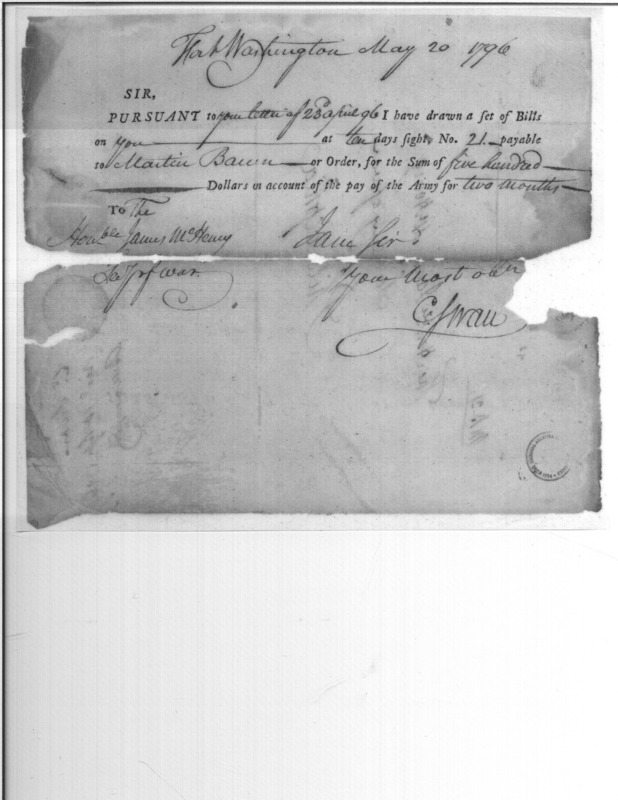 Fort Washington May 20 1796
SIR,
PURSUANT to your letter of 23d april 96 I have drawn a set of Bills
on you at ten days sight, No. 21. payable
to Martin Baum or Order, for the Sum of five hundred
Dollars in account of the pay of the Army for two months
To The
Honble James McHenry I am Sir
Secy of war. Your Most obt
C Swan